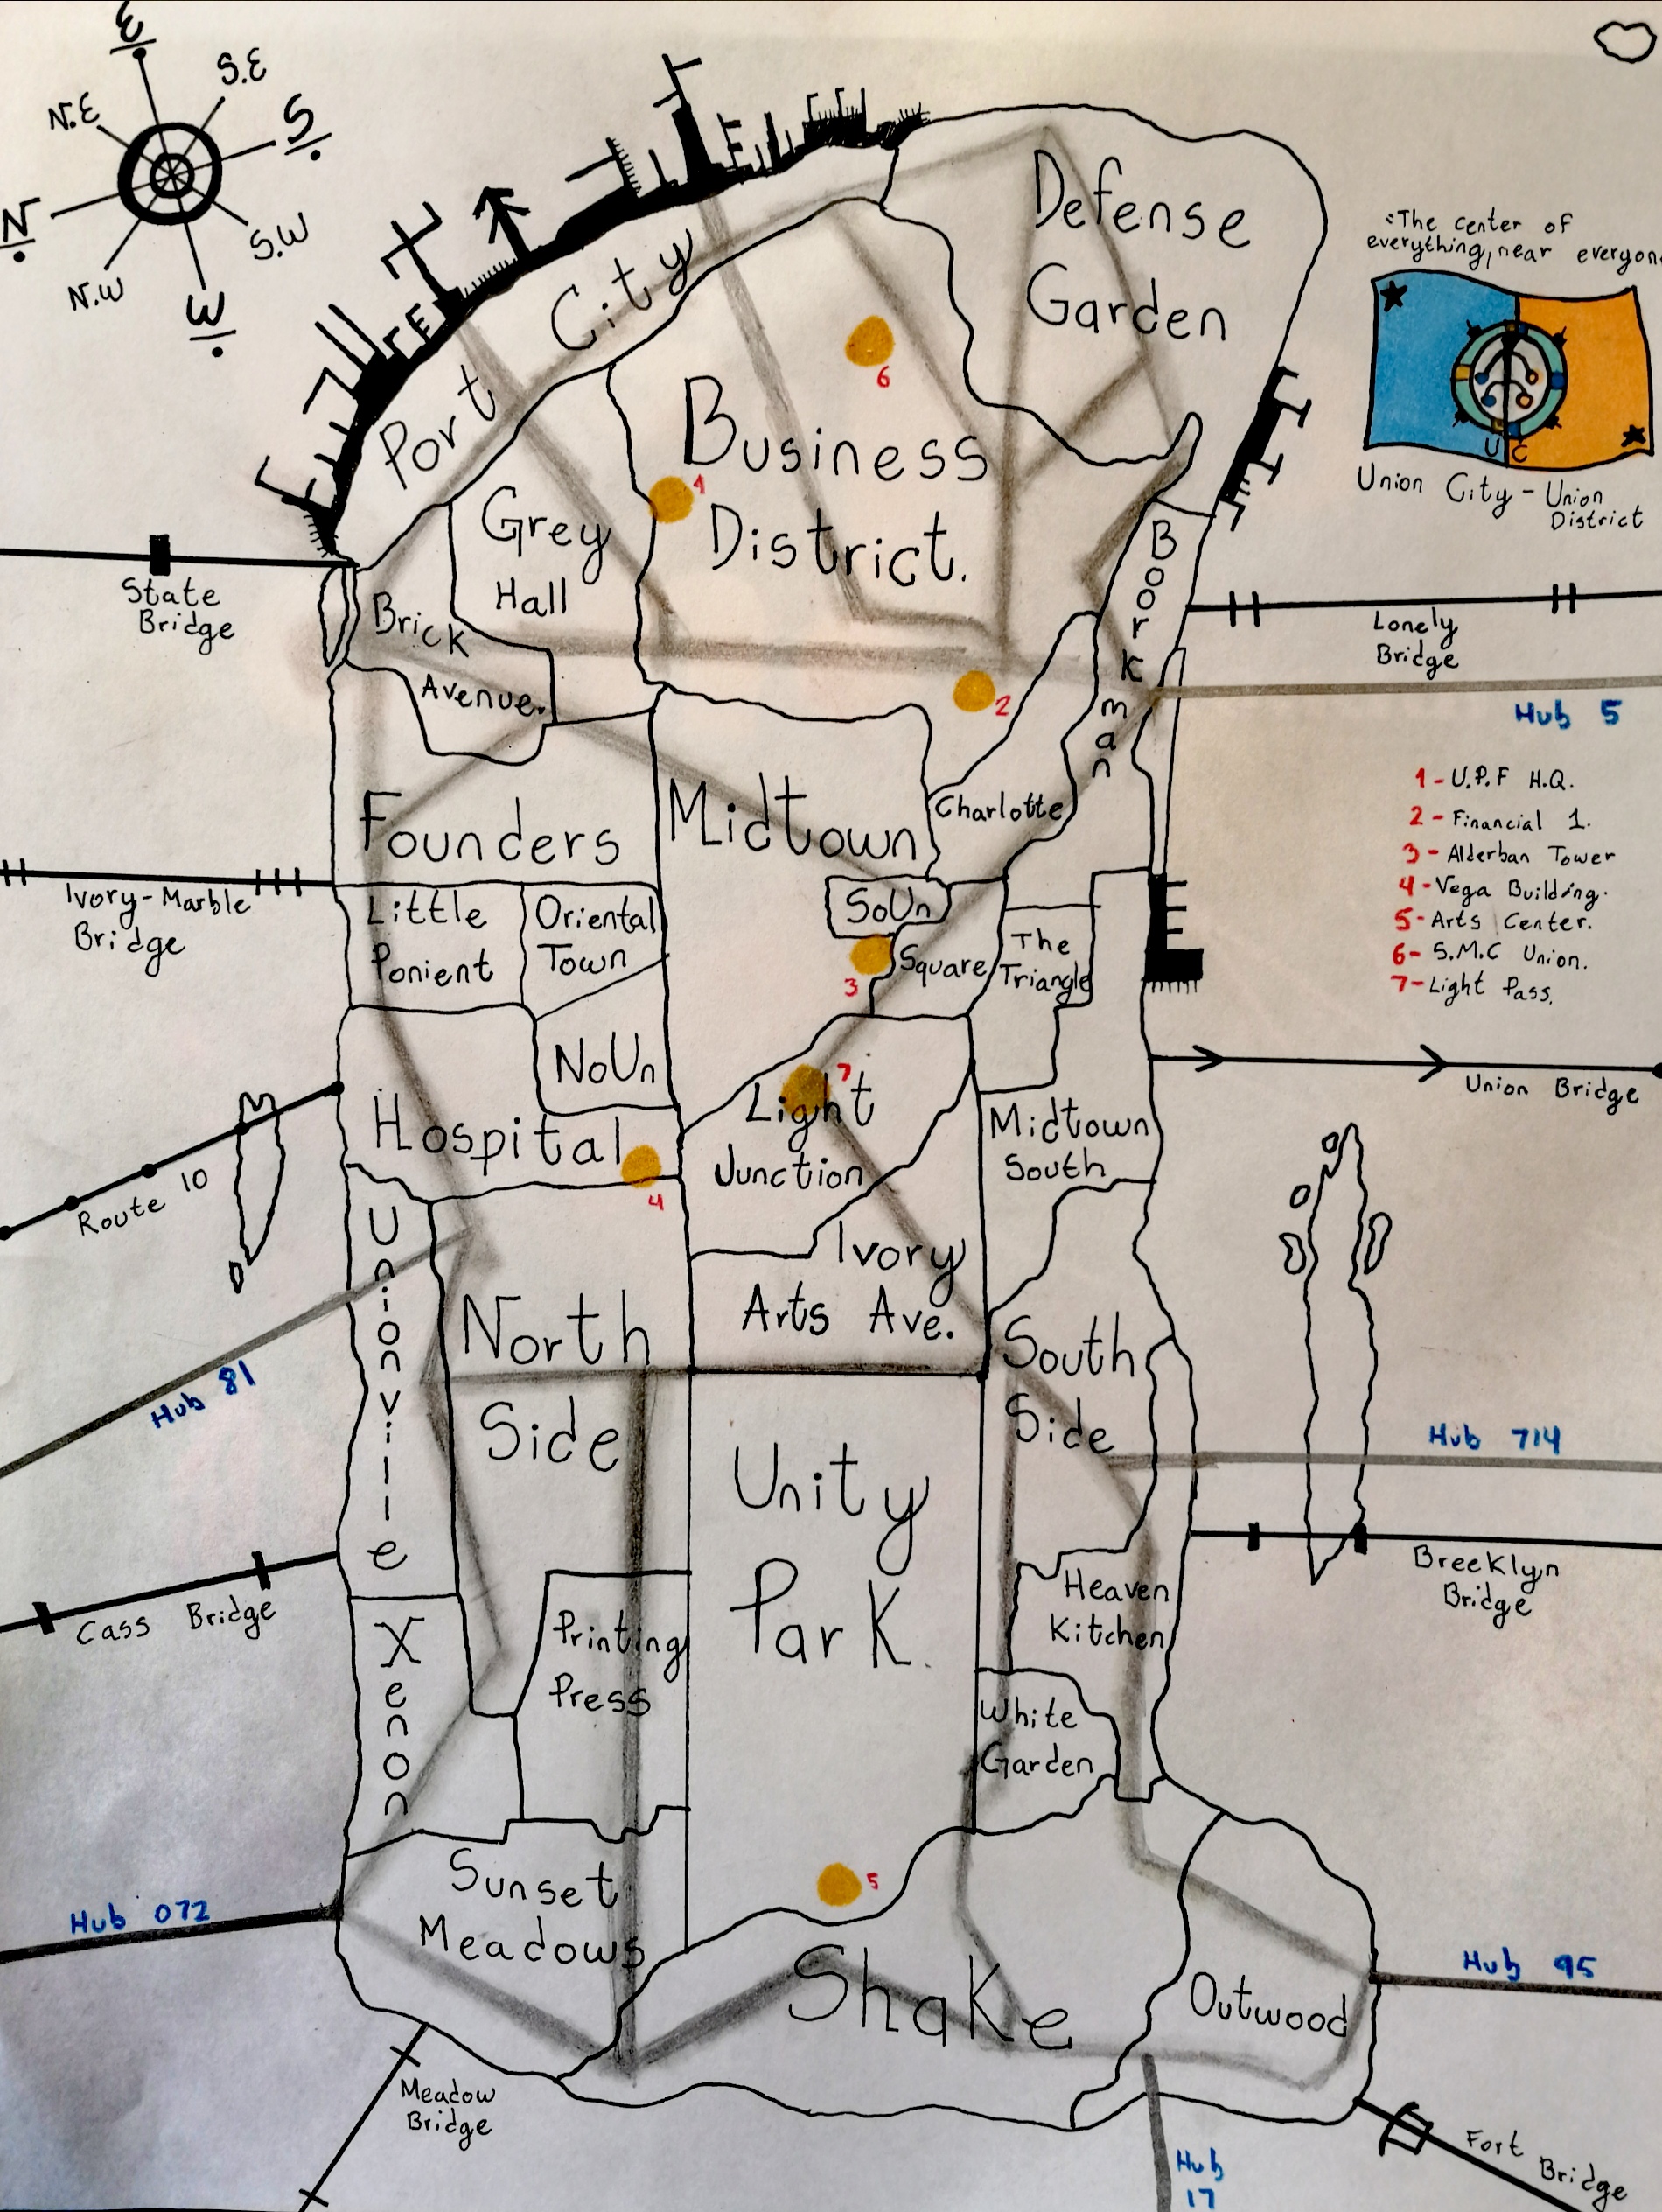 E
S.E
N.E
S
N
S.W
N.W
W
Defense
Garden
:The center of
everything, near everyon
U C
Union City - Union
District
Port City
6
Business
District.
1
Grey
Hall
State
Bridge
Brick
Avenue.
Boorkman
Lonely
Bridge
2
Hub 5
1 - U.P.F H.Q.
2 - Financial 1.
3 - Alderban Tower
4 - Vega Building.
5 - Arts Center.
6 - S.M.C Union.
7 - Light Pass.
Founders
Midtown
Charlotte
Ivory-Marble
Bridge
Little
Ponient
Oriental
Town
SoUn
Square
3
The
Triangle
NoUn
7
Light
Junction
Union Bridge
Hospital
4
Midtown
South
Route 10
Unionville
Ivory
Arts Ave.
North
Side
South
Side
Hub 81
Hub 714
Unity
Park.
Breeklyn
Bridge
Cass Bridge
Heaven
Kitchen
Xenon
Printing
Press
White
Garden
Sunset
Meadows
5
Hub 072
Shake
Outwood
Hub 95
Meadow
Bridge
Fort
Bridge
Hub
17